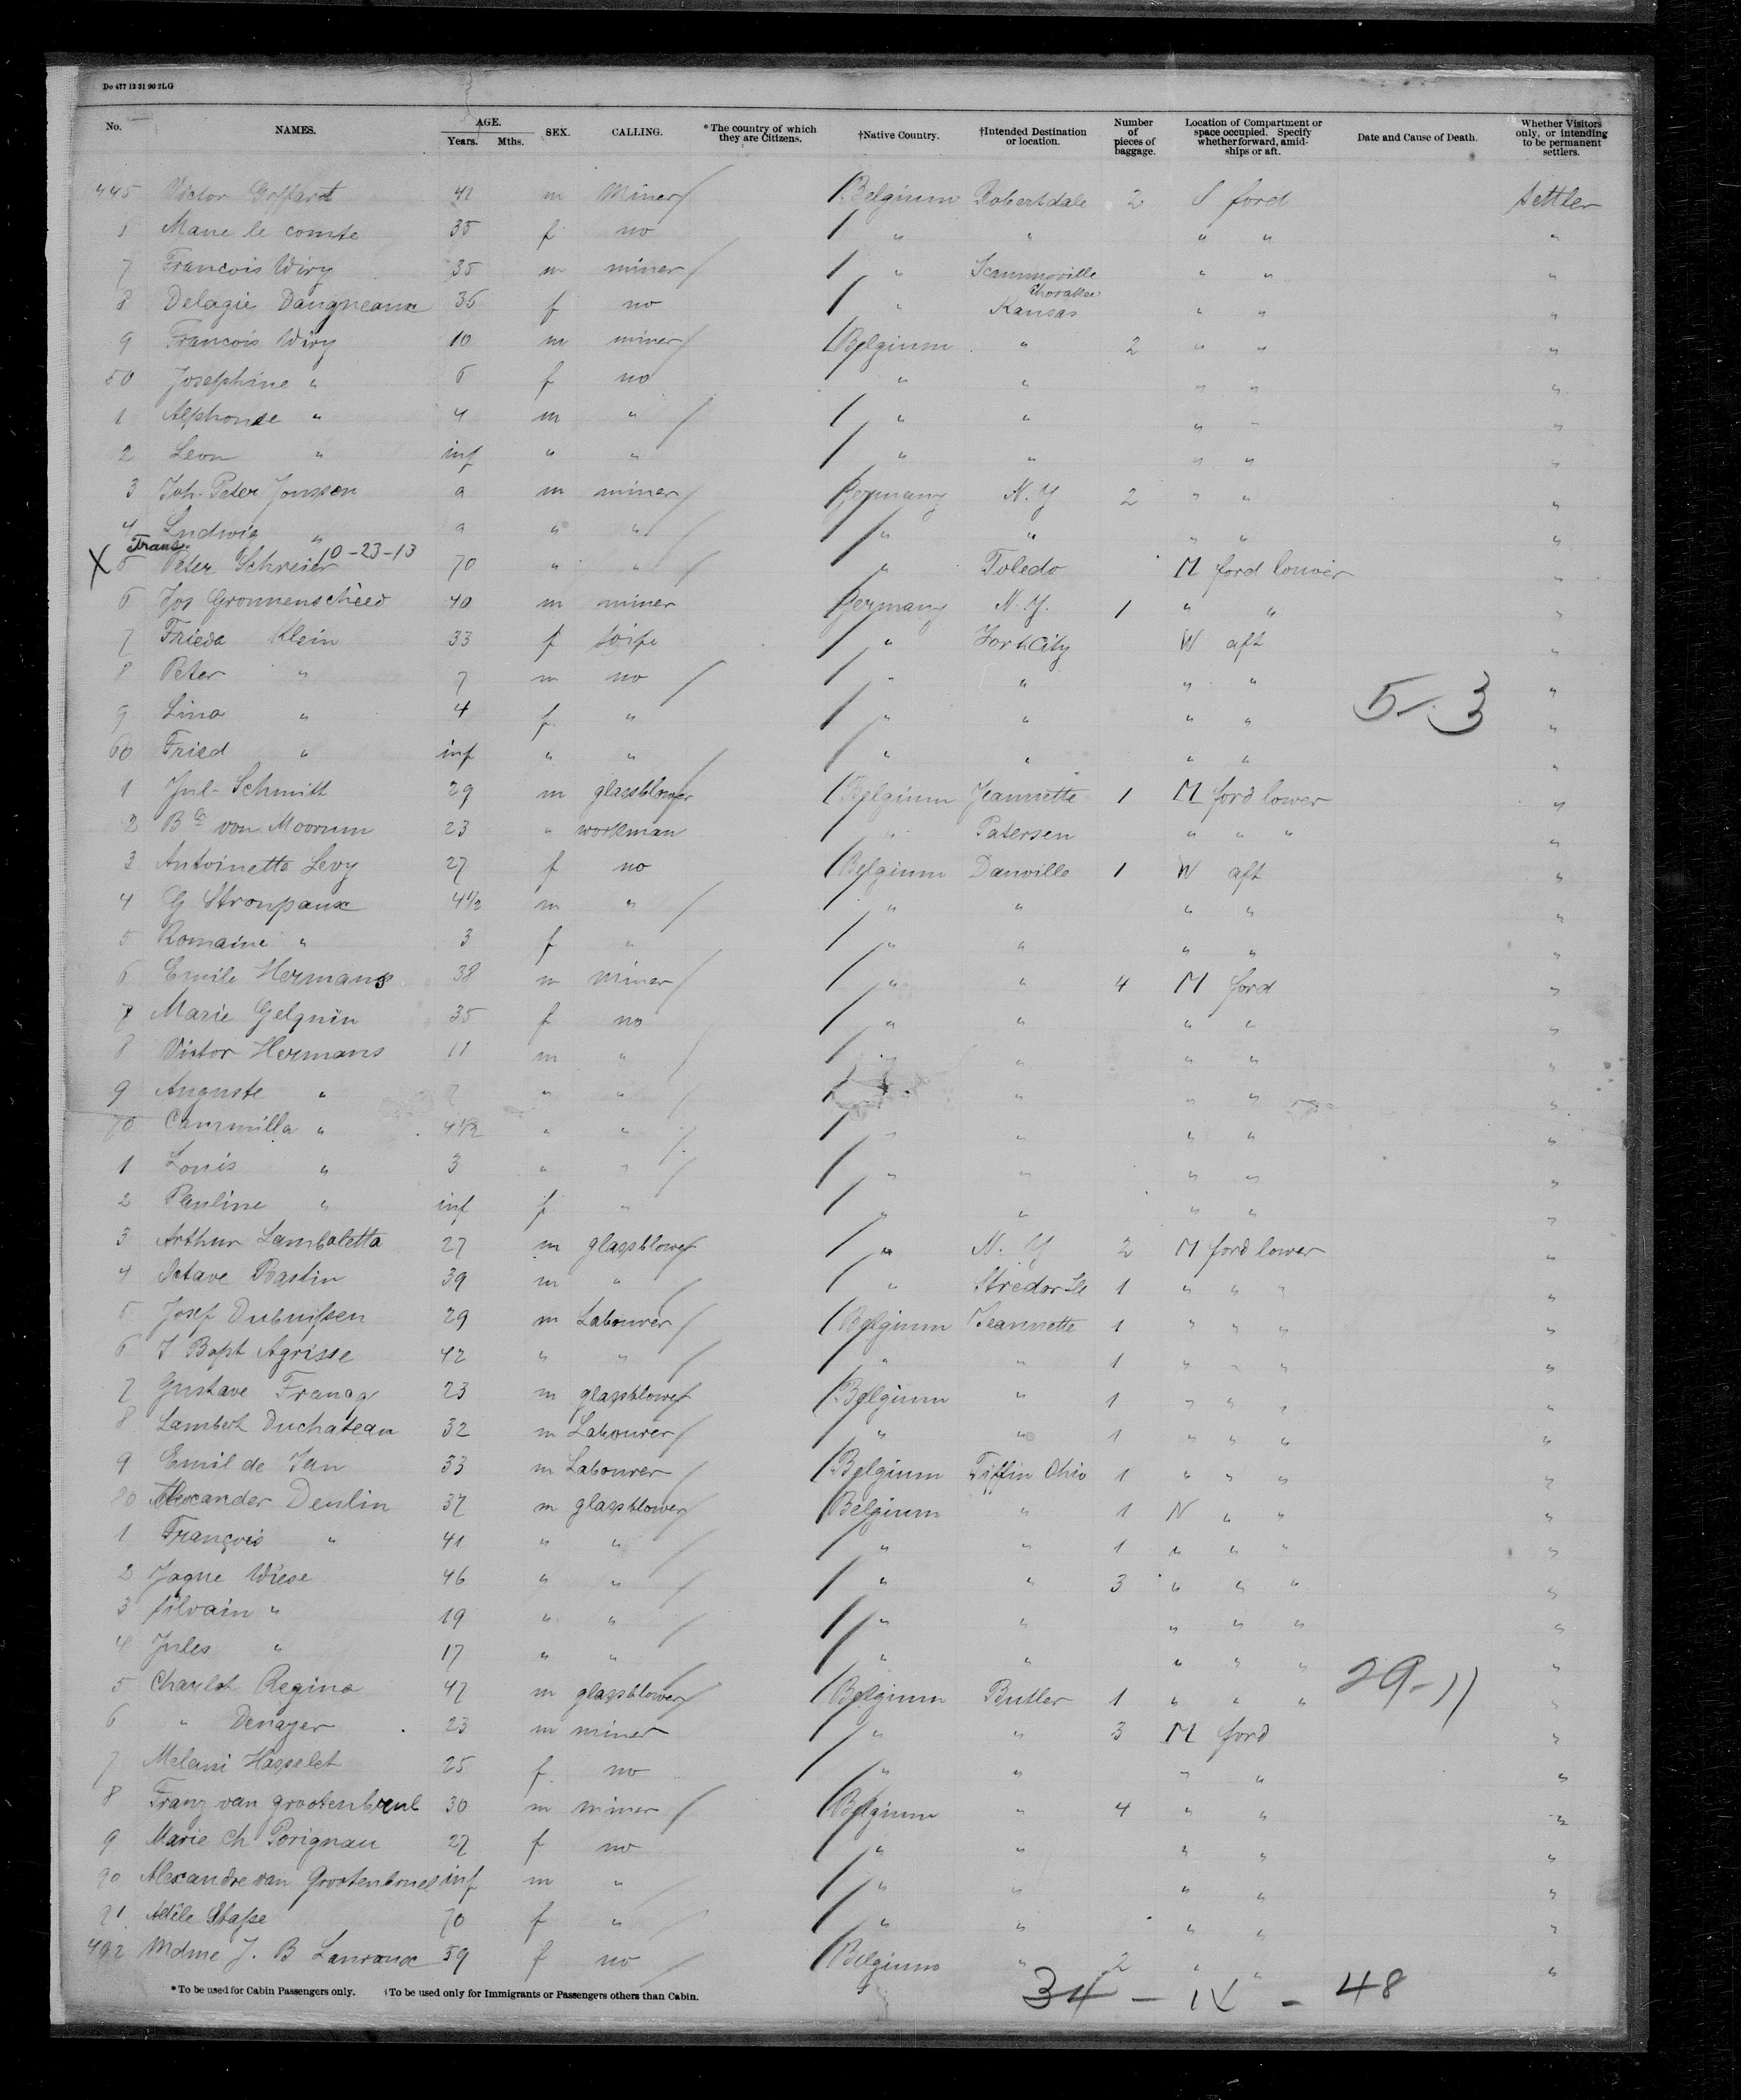 Do 477 12 31 90 2LG
No. NAMES. AGE. Years. Mths. SEX. CALLING. *The country of which they are Citizens. †Native Country. †Intended Destination or location. Number of pieces of baggage. Location of Compartment or space occupied. Specify whether forward, amidships or aft. Date and Cause of Death. Whether Visitors only, or intending to be permanent settlers.
445 Victor Goffart 41 m Miner Belgium Robertdale 2 S ford Settler
Marie le comte 35 f no " " " " "
7 Francois Wiry 35 m miner " Scammoville " " "
8 Delagie Daugneaux 36 f no " Cherokee Kansas " " "
9 Francois Wiry 10 m miner Belgium " 2 " " "
50 Josephine " 6 f no " " " " "
1 Alphonse " 4 m " " " " " "
2 Leon " inf " " " " " " "
3 Joh. Peter Jonssen a m miner Germany N.Y 2 " " "
4 Ludwig " a " " " " " " "
Trans. 10-23-13
X 5 Peter Schreier 70 " " " Toledo M ford lower "
6 Jos Gronnenscheed 40 m miner Germany N.Y. 1 " " "
7 Frieda Klein 33 f wife " W aft "
8 Peter " 7 m no " " " " "
9 Lina " 4 f " " " " " "
60 Fried " inf " " " " " " "
5-3
1 Jul- Schmitt 29 m glassblower Belgium Jeannette 1 M ford lower "
2 von Moorum 23 " workman " Patersen " " " "
3 Antoinette Levy 27 f no Belgium Danville 1 W aft "
4 G Stroupaux 4½ m " " " " " "
5 Romaine " 3 f " " " " " "
6 Emile Hermans 38 m miner " " 4 M ford "
7 Marie Gelquin 35 f no " " " " "
8 Victor Hermans 11 m " " " " "
9 Auguste " 7 " " " " " "
70 Cammilla " 4½ " " " " " " "
1 Louis " 3 " " " " " " "
2 Pauline " inf f " " " " " "
3 Arthur Lamboletta 27 m glassblower " N. Y 2 M ford lower "
4 Octave Bastin 39 m " " 1 " " " "
5 Josef Dubuissen 29 m Labourer Belgium Jeannette 1 " " " "
6 J Bapt Agrisse 42 " " " " 1 " " " "
7 Gustave 23 m glassblower Belgium " 1 " " " "
8 Lambert Duchateau 32 m Labourer " " 1 " " " "
9 Emil de Jan 33 m Labourer Belgium Tiffin Ohio 1 " " " "
80 Alexander Deulin 37 m glassblower Belgium " 1 N " " "
1 François " 41 " " " " 1 " " " "
2 Jaque Wiese 46 " " " " 3 " " " "
3 Silvain " 19 " " " " " " " "
4 Jules " 17 " " " " " " " "
5 Charlot Regina 47 m glassblower Belgium Butler 1 " " " 29-11 "
6 " Denayer 23 m miner " " 3 M ford "
7 Melani Hasselet 25 f no " " " " "
8 Franz van grootenbruel 30 m miner Belgium " 4 " " "
9 Marie Ch Porignau 27 f no " " " " "
90 Alexandre van Grootenbruel inf m " " " " " "
91 Adèle Stasse 70 f " " " " " "
492 Mdme J. B Lauraux 59 f no Belgium " 2 " " "
*To be used for Cabin Passengers only. †To be used only for Immigrants or Passengers others than Cabin.
34 - - 48